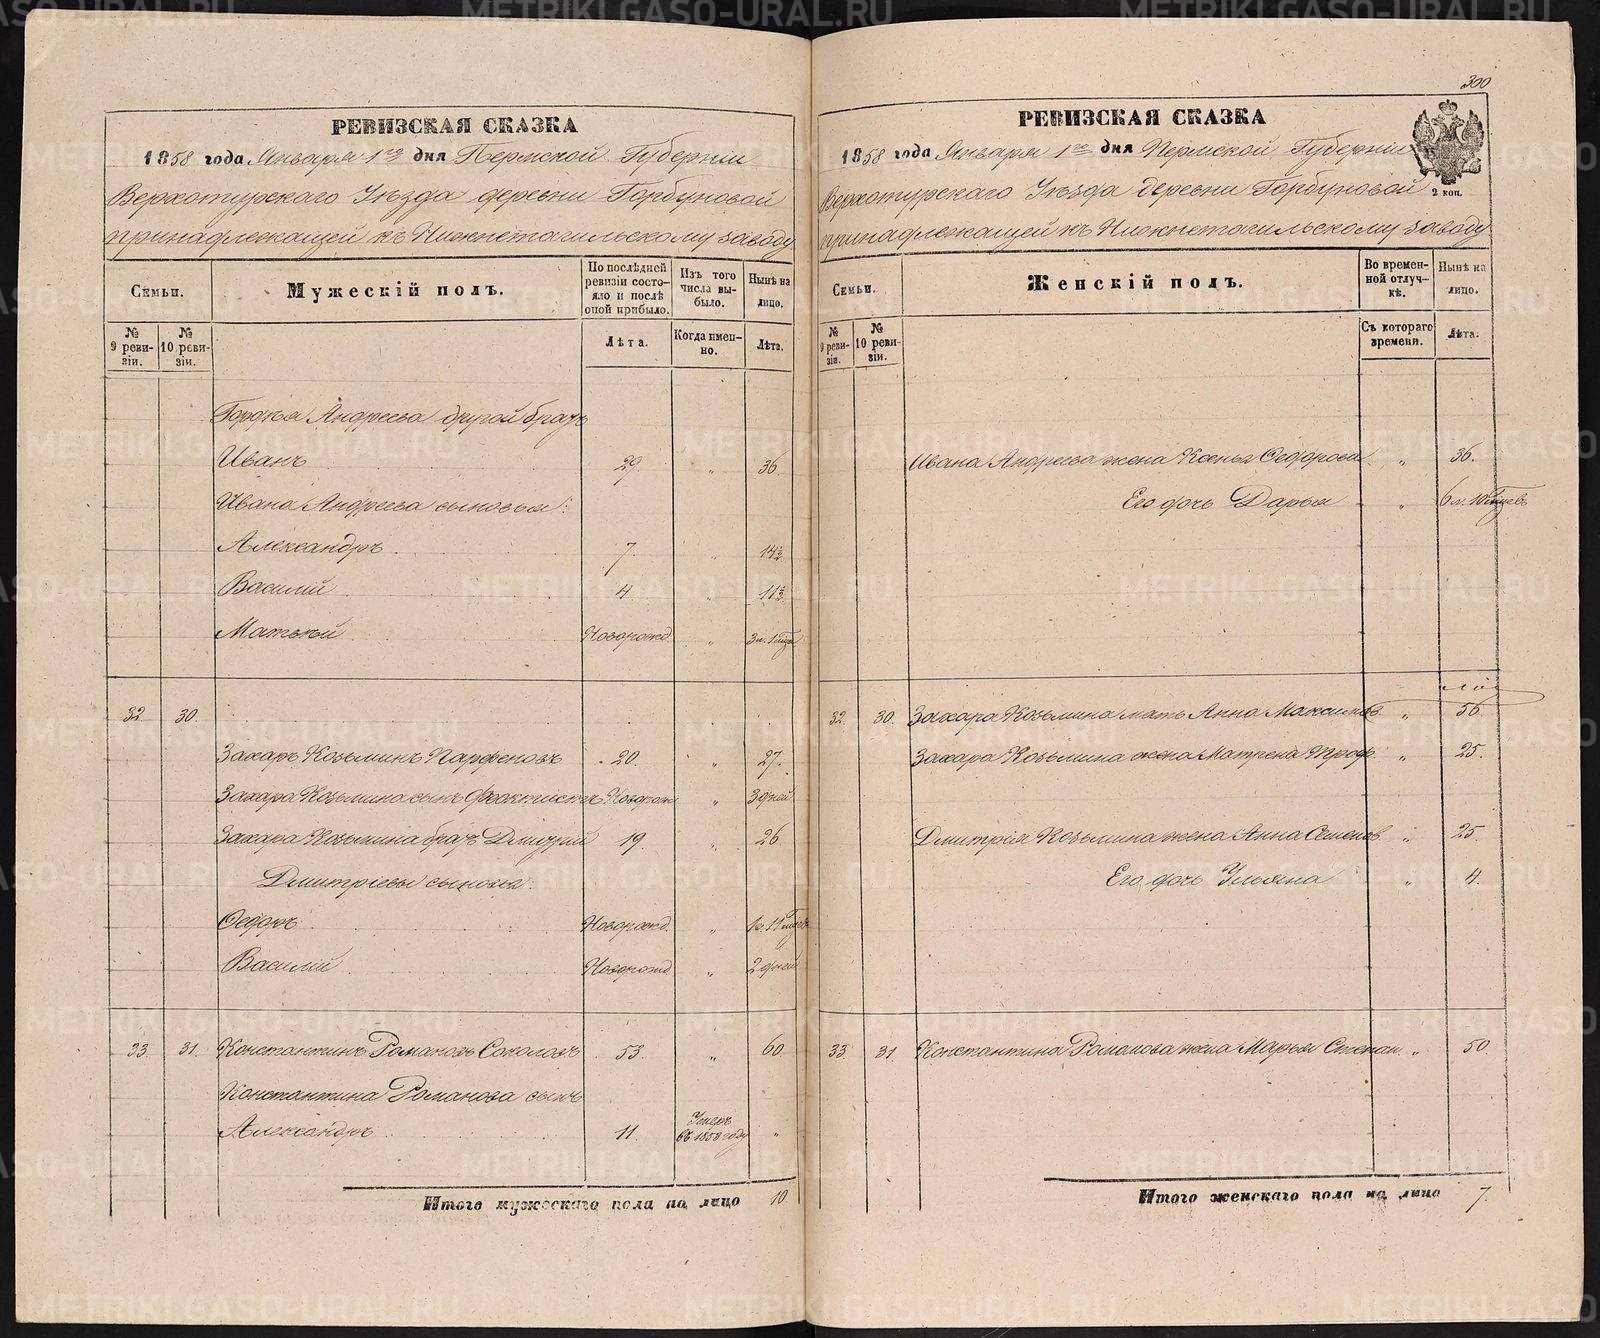 300
РЕВИЗСКАЯ СКАЗКА
1858 года Января 1го дня Пермской Губернiи
Верхотурскаго Уѣзда деревни Горбуновой
принадлежащей къ Нижнетагильскому заводу
Семьи.
Мужескiй полъ.
По послѣдней ревизiи состояло и послѣ оной прибыло.
Изъ того числа выбыло.
Нынѣ на лицо.
№ 9 ревизiи.
№ 10 ревизiи.
Лѣта.
Когда именно.
Лѣта.
Гордѣя Андреева другой братъ
Иванъ 29 " 36
Ивана Андреева сыновья:
Александръ 7. " 14½
Василiй 4 " 11½
Матвѣй Новорожд. "
32 30.
Захаръ Козьминъ Парфеновъ 20. " 27.
Захара Козьмина сынъ Новорожд " 3 дней
Захара Козьмина братъ Дмитрiй 19. " 26
Дмитрiевы сыновья:
Ѳедоръ Новорожд. "
Василiй Новорожд " 2 дней
33 31. Константинъ Романовъ Соколовъ 53. " 60
Константина Романова сынъ
Александръ 11. Умеръ "
Итого мужескаго пола на лицо 10
РЕВИЗСКАЯ СКАЗКА
1858 года Января 1го дня Пермской Губернiи
2 коп.
Верхотурскаго Уѣзда деревни Горбуновой
принадлежащей къ Нижнетагильскому заводу
Семьи.
Женскiй полъ.
Во временной отлучкѣ.
Нынѣ на лицо.
№ 9 ревизiи.
№ 10 ревизiи.
Съ котораго времени.
Лѣта.
Ивана Андреева жена Ксенья Ѳедорова " 36.
Его дочь Дарья "
32 30. Захара Козьмина мать Анна Максимов. " 56
Захара Козьмина жена Матрена Проф. " 25.
Дмитрiя Козьмина жена Анна Семенов. " 25.
Его дочь Ульяна " 4.
33 31. Константина Романова жена Марья Степан. " 50.
Итого женскаго пола на лицо 7.
METRIKI.GASO-URAL.RU